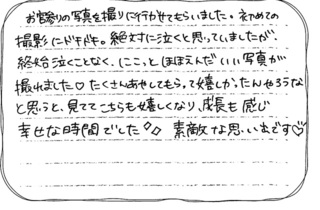 お宮参りの写真を撮りに行かせてもらいました。初めての
撮影にドキドキ。絶対に泣くと思っていましたが、
終始泣くことなく、にこっとほほえんだいい写真が
撮れました♡たくさんあやしてもらって嬉しかったんやろうな
と思うと、見ててこちらも嬉しくなり、成長も感じ
幸せな時間でした◇◇ 素敵な思い出です♡